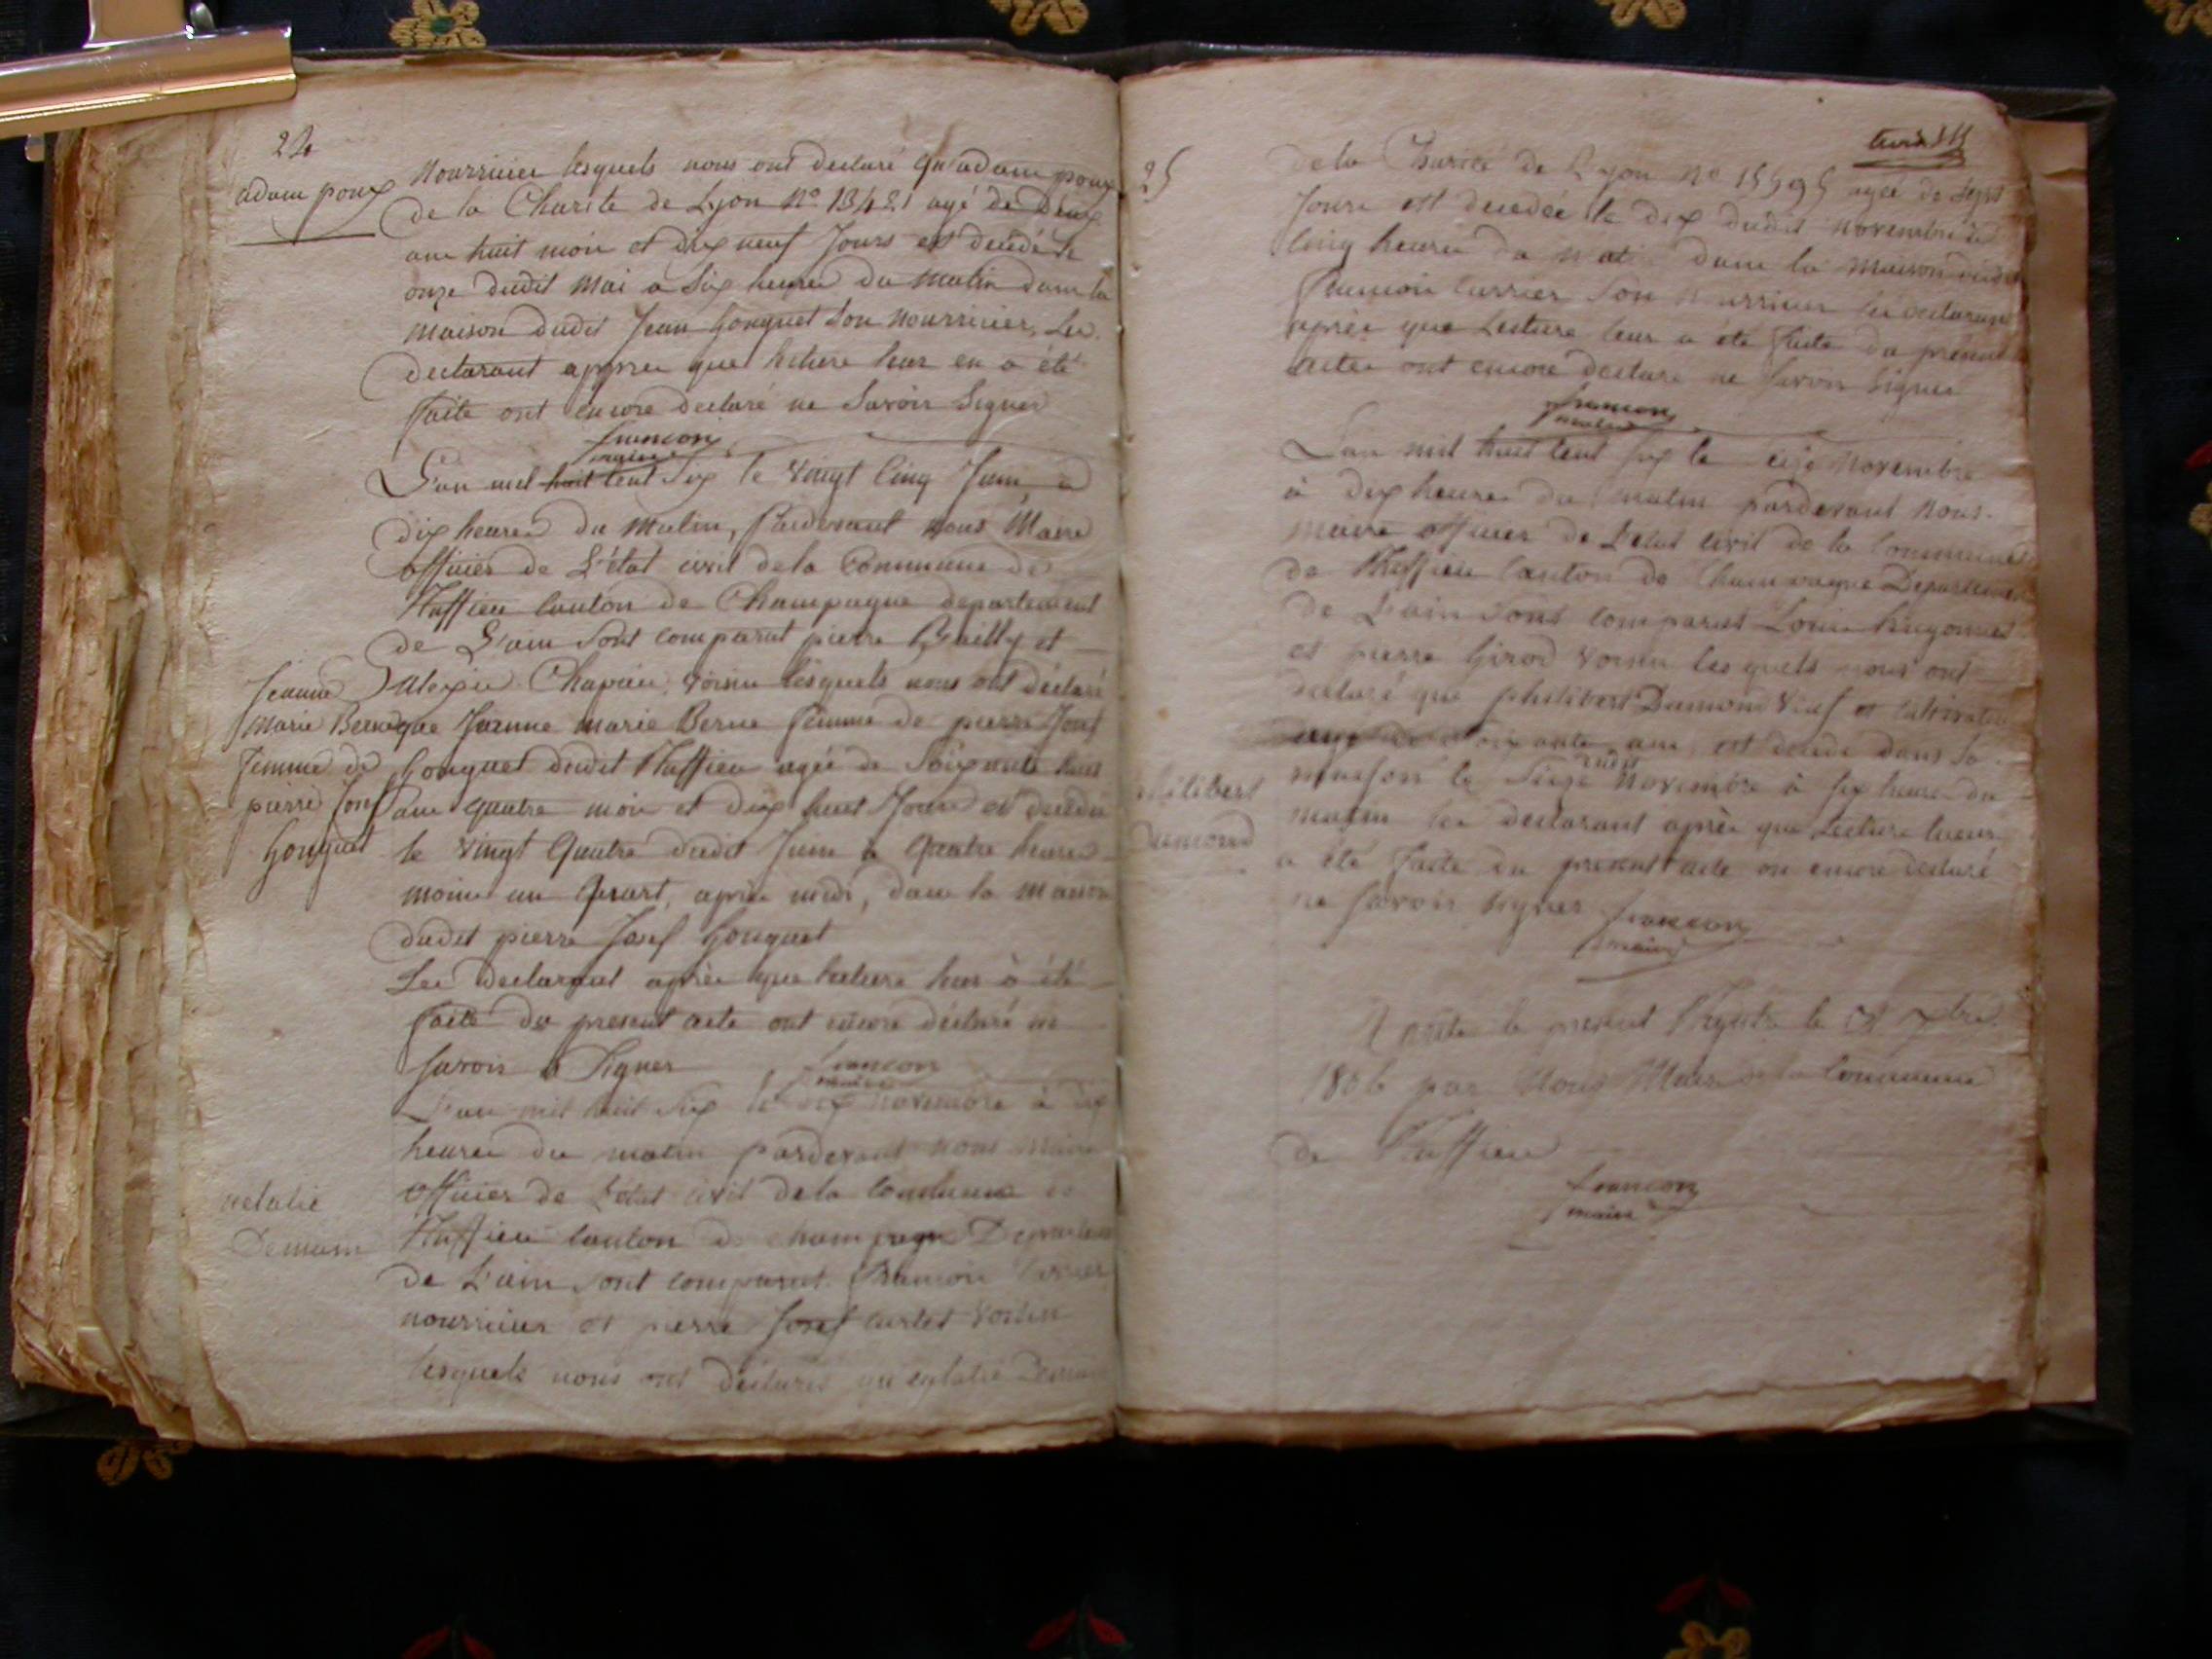 24
adam poux
Nourricier lesquels nous ont declaré qu'adam poux
de la Charité de Lyon N° 13421 agé de deux
ans huit mois et dix neuf Jours est décédé le
onze dudit Mai a Six heures du matin dans la
maison dudit Jean Gonguet Son Nourricier, Les
declarant apprés que lecture leur en a été
faite ont encore declaré ne Savoir Signer
francon
maire
L'an mil huit cent Six le vingt Cinq Juin à
dix heures du Matin, Pardevant Nous Maire
officier de L'état civil de la Commune de
Ruffieu Canton de Champagne departement
de L'ain Sont comparut pierre Bailly et
Alexis Chapuis, voisin lesquels nous ont déclaré
que Jeanne marie Berne femme de pierre Josef
Gonguet dudit Ruffieu agée de Soixante huit
ans quatre mois et dix huit Jours est decedée
le vingt Quatre dudit Juin à Quatre heures
moins un Quart, après midi, dans la maison
dudit pierre Josef Gonguet
Jeanne
Marie Berne
femme de
pierre Josef
Gonguet
Les declarant après que lecture leur à été
faite du present acte ont encore déclaré ne
Savoir Signer francon
maire
L'an mil huit Six le dix Novembre à dix
heures du matin pardevant nous maire
officier de L'état civil de la Commune de
Ruffieu Canton de champagne Departement
de L'ain Sont comparut
nourricier et pierre Josef voisin
lesquels nous ont déclarés Demain
Demain
25
de la Charité de Lyon N° 15595 agée de Sept
Jours est decedée le dix dudit novembre à
Cinq heures du matin dans la maison dudit
Son Nourricier les declarant
après que Lecture leur a été faite du présent
acte ont encore declaré ne Savoir Signer
francon
maire
L'an mil huit cent Six le Novembre
à dix heures du matin pardevant Nous
Maire officier de L'état civil de la Commune
de Ruffieu Canton de Champagne Departement
de L'ain Sont comparut Louis
et pierre Girod voisin lesquels nous ont
declaré que philibert Dumond veuf et cultivateur
agé de Soixante ans est decedé dans Sa
maison le Seize dudit Novembre à Six heures du
matin les declarant après que Lecture leur
a été faite du present acte on encore declaré
ne Savoir Signer francon
maire
philibert
dumond
le present Registre le
1806 par Nous Maire de la Commune
de Ruffieu
francon
maire